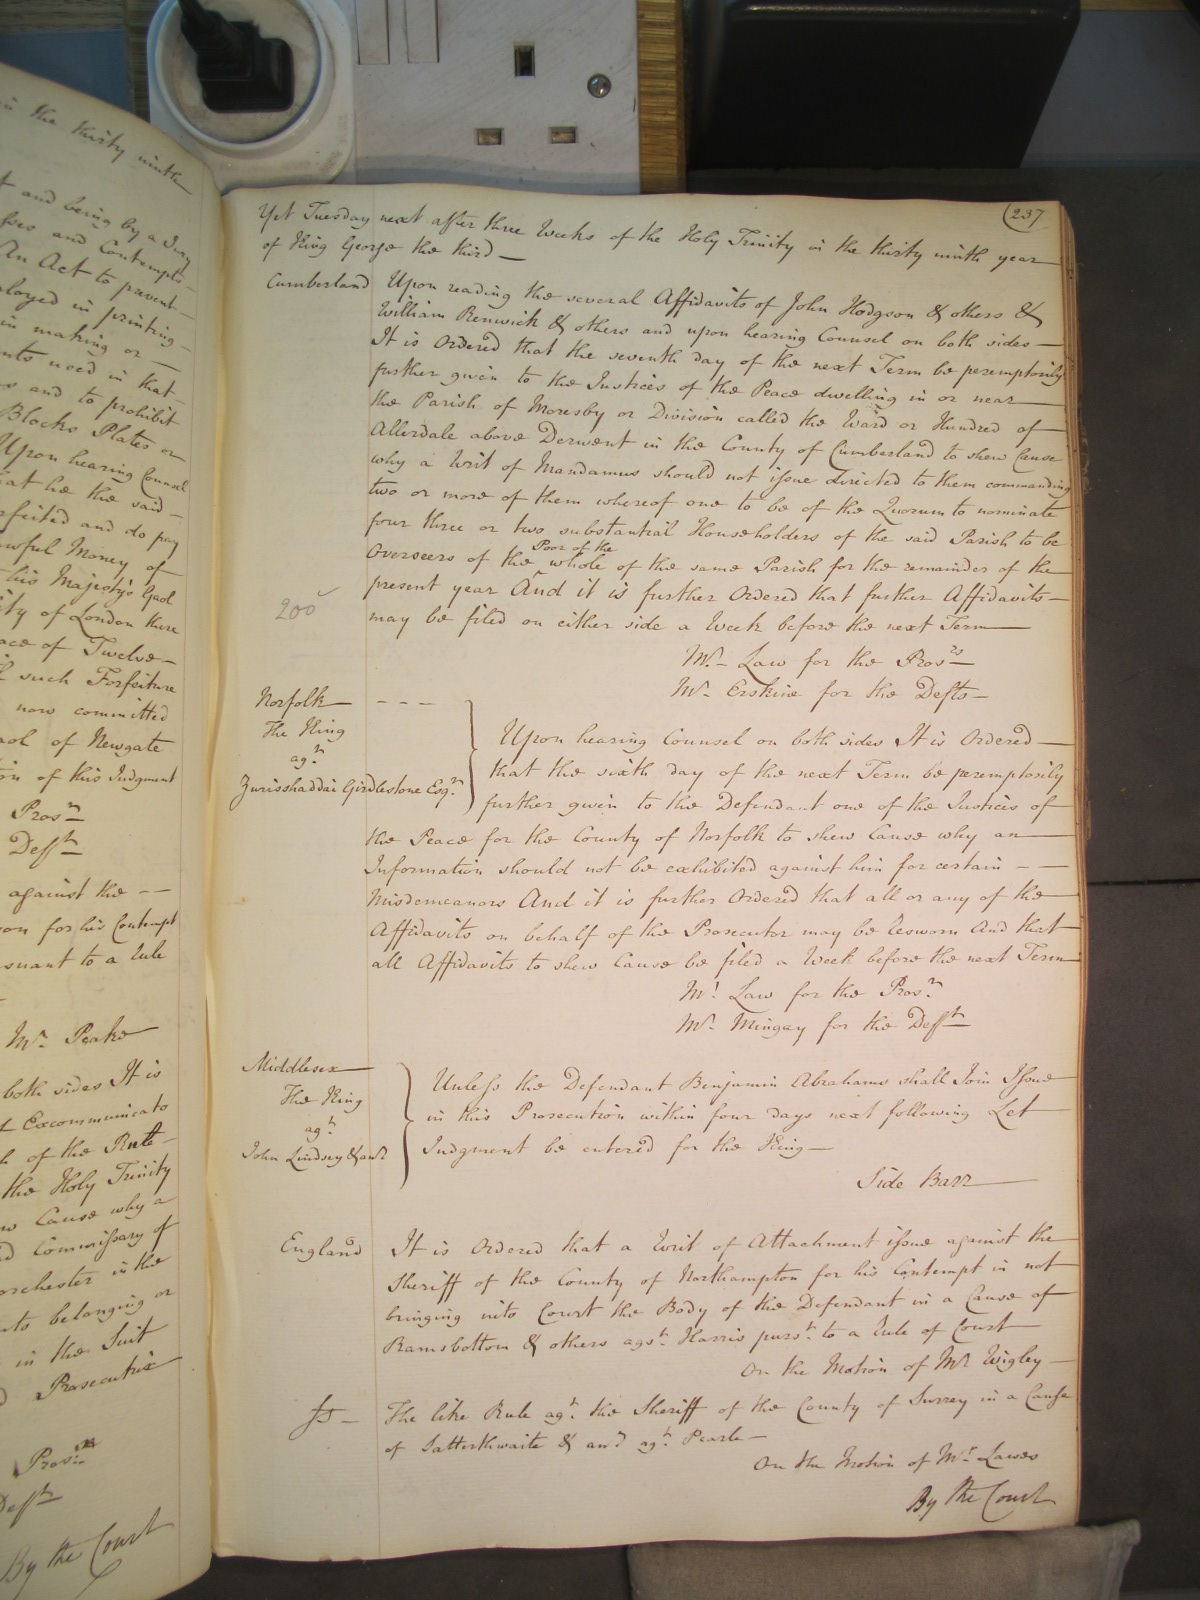 in the thirty ninth
t and being by a Jury
fses and Contempts
An Act to prevent
ployed in printing
in making or
nts used in that
s and to prohibit
Blocks Plates or
Upon hearing Counsel
at he the said
rfeited and do pay
awful Money of
his Majesty's Gaol
ity of London there
ace of Twelve
f such Forfeiture
now committed
aol of Newgate
on of this Judgment
Prosr
Defft
against the
on for his Contempt
suant to a Rule
Mr Peake
both sides It is
t Excommunicato
h of the Rule
the Holy Trinity
w Cause why a
d Commissary of
orchester in the
nts belonging or
in the Suit
Prosecutrix
Prosrx
Defft
By the Court
237
Yet Tuesday next after three Weeks of the Holy Trinity in the thirty ninth year
of King George the third
Cumberland Upon reading the several Affidavits of John Hodgson & others &
William Renwick & others and upon hearing Counsel on both sides
It is Ordered that the seventh day of the next Term be peremptorily
further given to the Justices of the Peace dwelling in or near
the Parish of Moresby or Division called the Ward or Hundred of
Allerdale above Derwent in the County of Cumberland to shew Cause
why a Writ of Mandamus should not issue directed to them commanding
two or more of them whereof one to be of the Quorum to nominate
four three or two substantial Householders of the said Parish to be
Poor of the
Overseers of the whole of the same Parish for the remainder of the
present year And it is further Ordered that further Affidavits
200 may be filed on either side a Week before the next Term
Mr Law for the Prosrs
Mr Erskine for the Defts
Norfolk
The King
agt
Zurisshaddai Girdlestone Esqr
Upon hearing Counsel on both sides It is Ordered
that the sixth day of the next Term be peremptorily
further given to the Defendant one of the Justices of
the Peace for the County of Norfolk to shew Cause why an
Information should not be exhibited against him for certain
Misdemeanors And it is further Ordered that all or any of the
Affidavits on behalf of the Prosecutor may be resworn And that
all Affidavits to shew Cause be filed a Week before the next Term
Mr Law for the Prosr
Mr Mingay for the Defft
Middlesex
The King
agt
John Lindsey & anr
Unless the Defendant Benjamin Abrahams shall Join Issue
in this Prosecution within four days next following Let
Judgment be entered for the King
Side Barr
England It is Ordered that a Writ of Attachment issue against the
Sheriff of the County of Northampton for his Contempt in not
bringing into Court the Body of the Defendant in a Cause of
Ramsbottom & others agst Harris purst to a Rule of Court
On the Motion of Mr Wigley
ss The like Rule agt the Sheriff of the County of Surrey in a Cause
of Satterthwaite & anr agt Pearle
On the Motion of Mr Lawes
By the Court